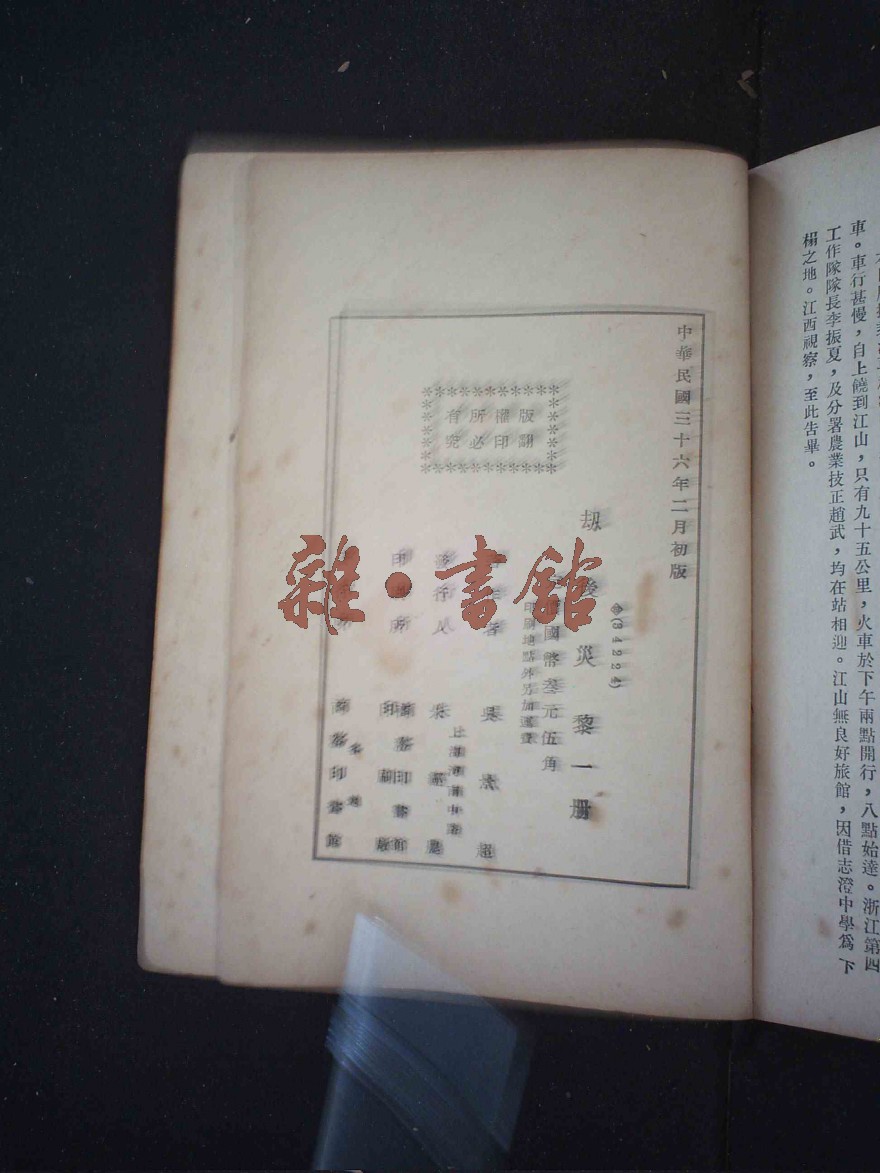 車。車行甚慢，自上饒到江山，只有九十五公里，火車於下午兩點開行，八點始達。浙江第四
工作隊隊長李振夏，及分署農業技正趙武，均在站相迎。江山無良好旅館，因借志澄中學爲下
榻之地。江西視察，至此告畢。
中華民國三十六年二月初版
劫後災黎一册
(54224)
國幣叁元伍角
印刷地點外另加運費
版權所有
翻印必究
著作者
發行人
上海河南中路
朱經農
印刷所
商務印書館
印刷廠
商務印書館
雜·書館